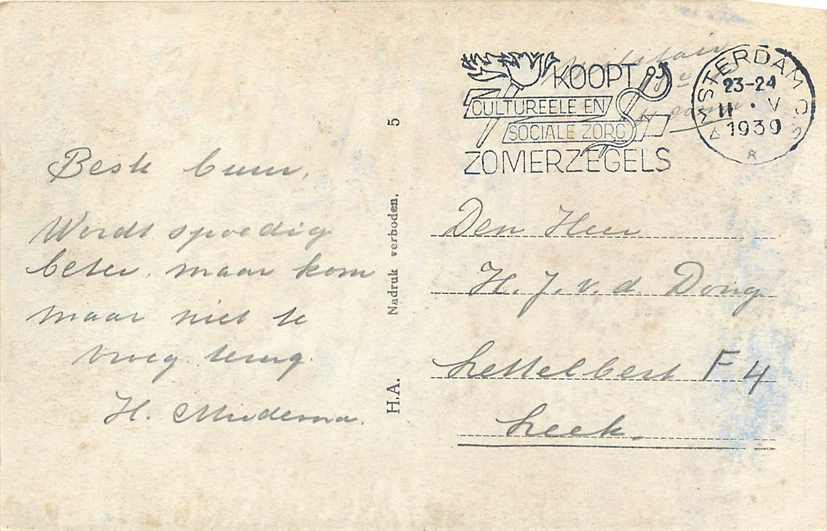 Beste buur,
Wordt spoedig
beter, maar kom
maar niet te
vroeg terug.
H. Miedema.
H.A. Nadruk verboden. 5
KOOPT
CULTUREELE EN
SOCIALE ZORG
ZOMERZEGELS
AMSTERDAM C.S.
23-24
11 · V
1939
Den Heer
H. J. v. d. Dong
Lettelbert F 4
Leek.